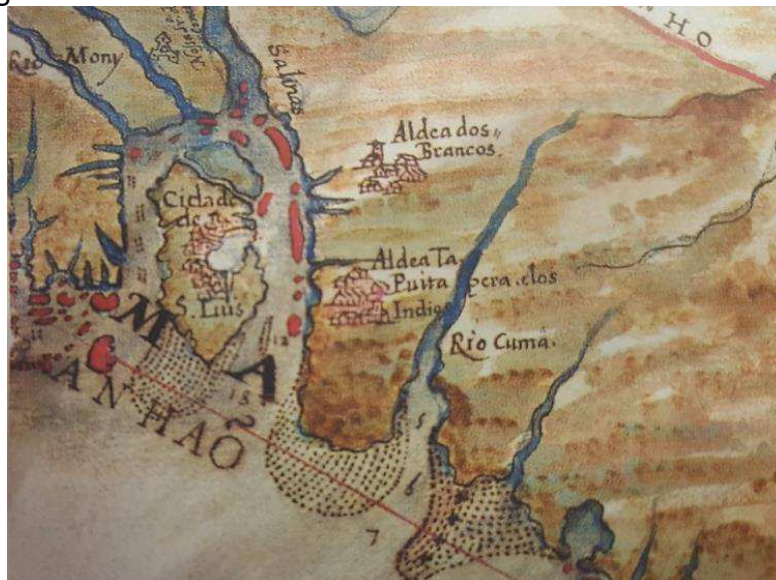 NHO
Rio Mony
Salinas
Aldea dos
Brancos.
Cidade
de
S. Luis
Aldea Ta
Puita pera dos
Indios
Rio Cumâ.
MA
ANHAÕ
12
15
5
6
7